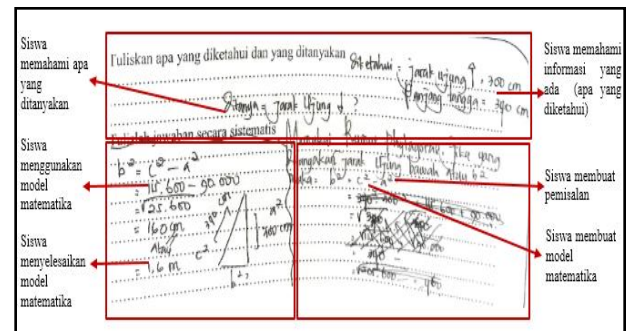 Siswa
memahami apa
yang
ditanyakan
Siswa
menggunakan
model
matematika
Siswa
menyelesaikan
model
matematika
Tuliskan apa yang diketahui dan yang ditanyakan
Diketahui = jarak ujung ↑ = 300 cm
Panjang tangga = 340 cm
Ditanya = jarak ujung ↓ ?
jawaban secara sistematis
b² = c² - a²
= 115.600 - 90.000
= √25.600
= 160 cm
Atau
= 1,6 m
c²
a²
300 cm
b²?
Rumus jika yang
jarak ujung bawah Atau b²
Maka = b² = c² - a²
Siswa memahami
informasi yang
ada (apa yang
diketahui)
Siswa membuat
pemisalan
Siswa membuat
model
matematika